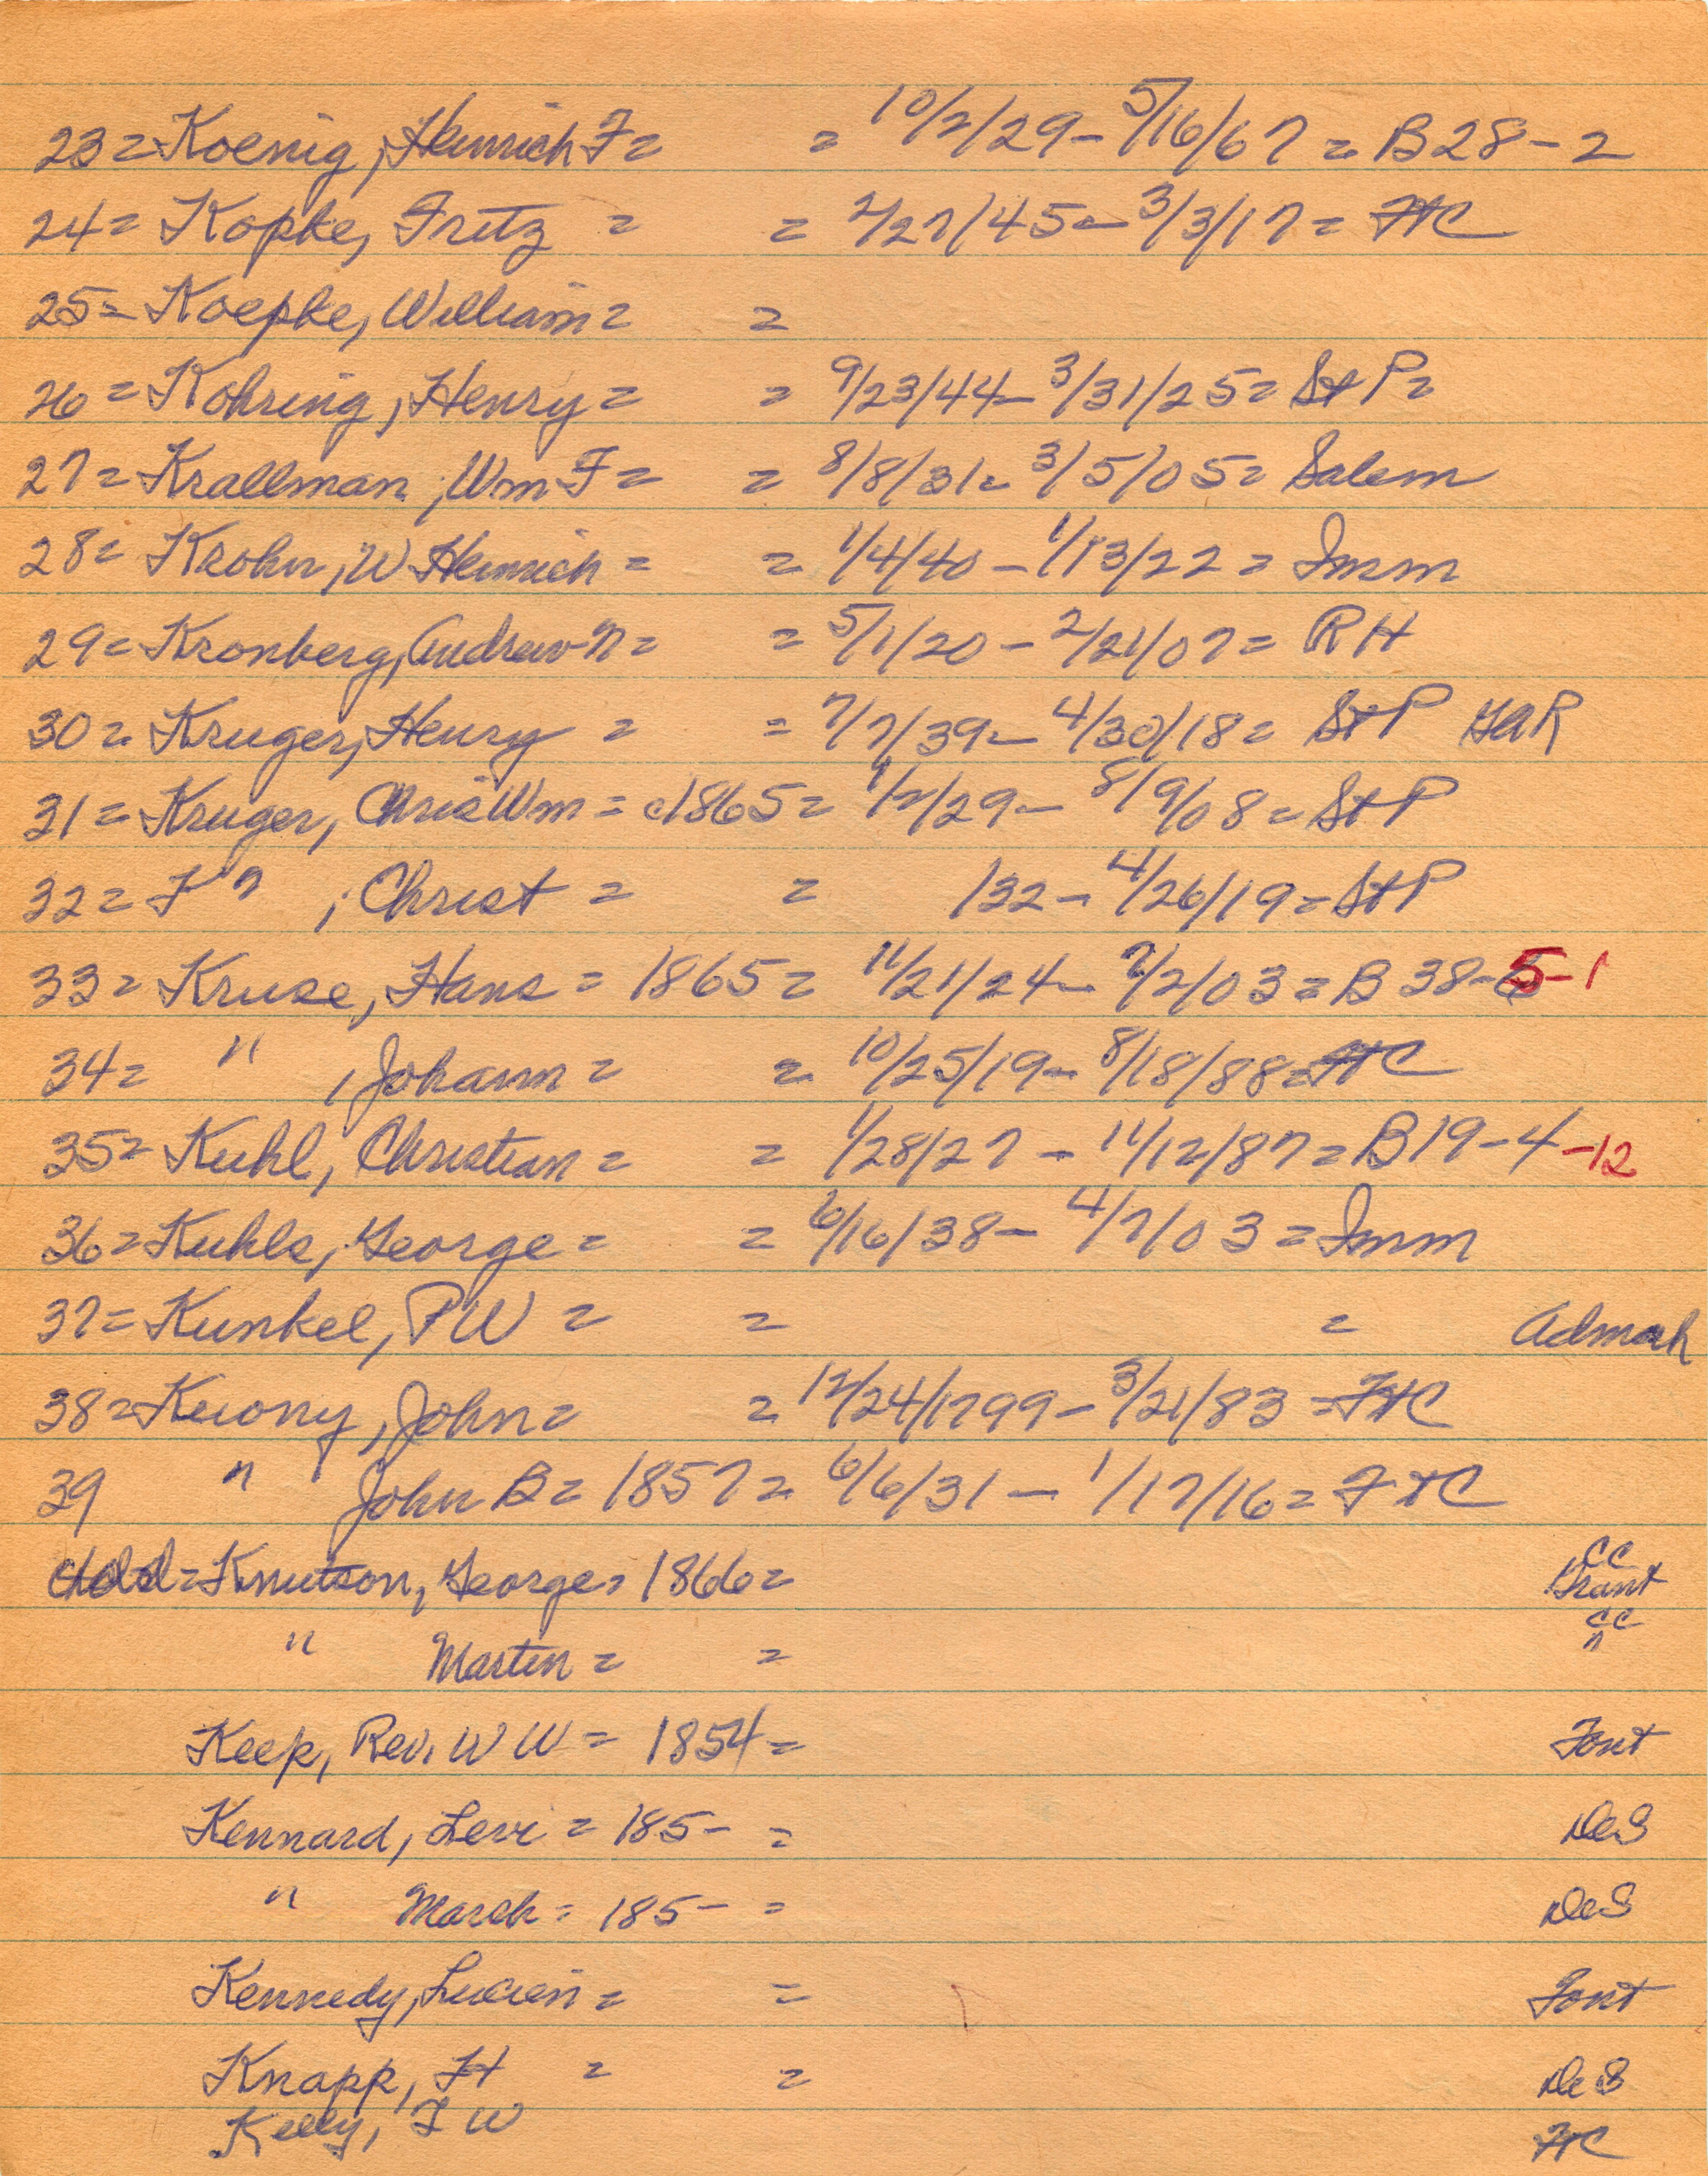 23 = Koenig, Heinrich F = = 10/2/29 - 5/16/67 = B28-2
24 = Kopke, Fritz = = 2/27/45 - 3/3/17 = FtC
25 = Koepke, William = =
26 = Kohring, Henry = = 9/23/44 - 3/31/25 = St P =
27 = Krallman, Wm F = = 8/8/31 = 3/5/05 = Salem
28 = Krohn, W Heinrich = = 1/4/40 - 1/13/22 = Imm
29 = Kronberg, Andrew N = = 5/1/20 - 2/21/07 = RH
30 = Kruger, Henry = = 7/7/39 - 4/30/18 = St P GAR
31 = Kruger, Chris Wm = c1865 = 1/2/29 - 8/9/08 = St P
32 = F " , Christ = = /32 - 4/26/19 = St P
33 = Kruse, Hans = 1865 = 11/21/24 - 7/2/03 = B 38-5-1
34 = " , Johann = = 10/25/19 - 8/18/88 = FtC
35 = Kuhl, Christian = = 1/28/27 - 11/12/87 = B19-4-12
36 = Kuhls, George = = 6/16/38 - 4/7/03 = Imm
37 = Kunkel, PW = = = Admah
38 = Kuony, John = = 12/24/1799 - 3/21/83 = FtC
39 " John B = 1857 = 6/6/31 - 1/17/16 = FtC
Add = Knutson, George = 1866 = CC Grant
" Martin = = CC "
Keep, Rev. W W = 1854 = Font
Kennard, Levi = 185- = DeS
" March = 185- = DeS
Kennedy, Lucien = = Font
Knapp, H = = DeS
Kelly, F W FtC